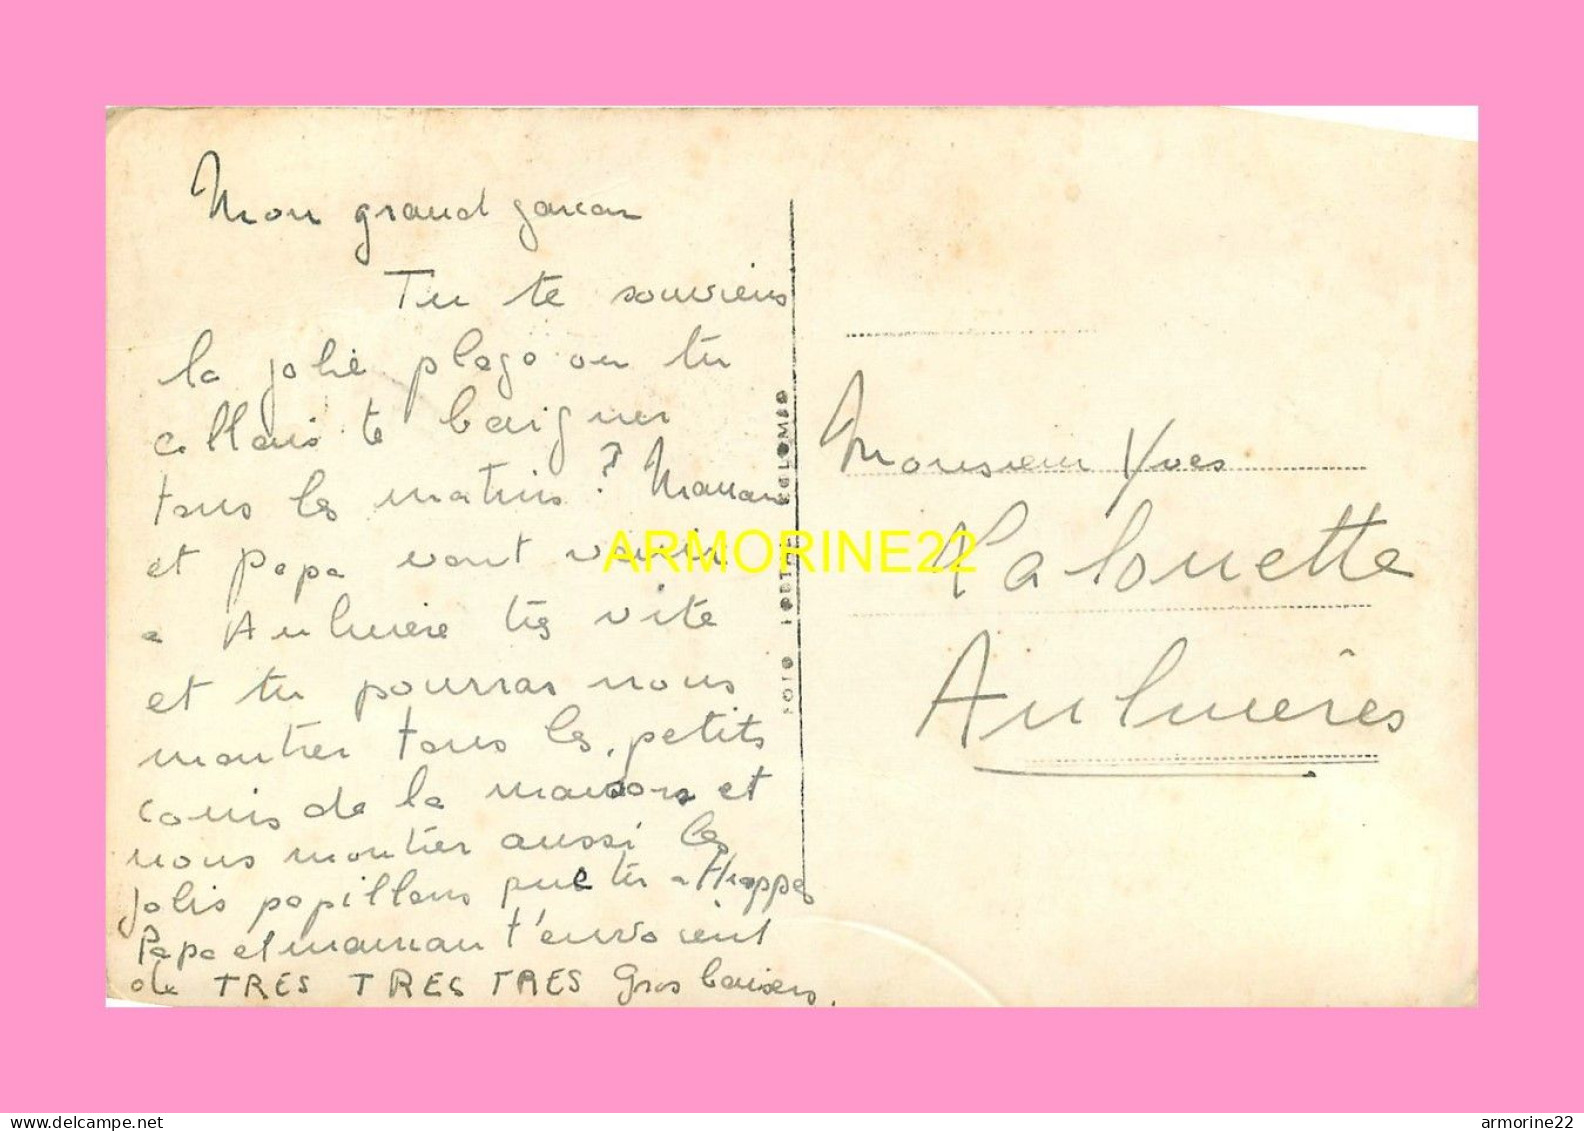 Mon grand garcon
Tu te souviens
la jolie plage ou tu
allais te baigner
tous les matins ? Maman
et Papa vont venir
a Aulnière très vite
et tu pourras nous
montrer tous les petits
coins de la maison et
nous montrer aussi les
jolis papillons que tu a
Papa et maman t'envoient
de TRES TRES TRES Gros baisers.
Monsieur Yves
Lalouette
Aulnières
ARMORINE22
delcampe.net
armorine22